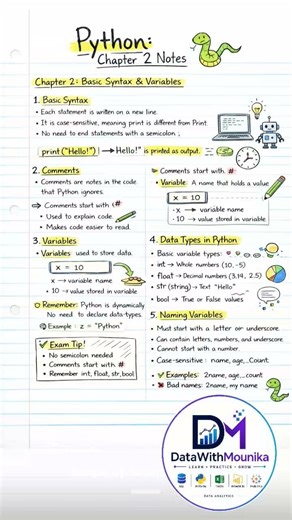 Python:
Chapter 2 Notes
Chapter 2: Basic Syntax & Variables
1. Basic Syntax
• Each statement is written on a new line.
• It is case-sensitive, meaning print is different from Print.
• No need to end statements with a semicolon ;
print("Hello!") → Hello!" is printed as output.
2. Comments
• Comments are notes in the code
that Python ignores.
⇨ Comments start with (#
• Used to explain code
• Makes code easier to read.
• Comments start with #
• Variable: A name that holds a value
x = 10
• x → variable name
• 10 → value stored in variable
3. Variables
• Variables used to store data.
x = 10
x → variable name
• 10 → value stored in variable
Remember: Python is dynamically
No need to declare data-types.
Example: z = "Python"
✓ Exam Tip!
• No semicolon needed
• Comments start with #
• Remember int, float, str, bool
4. Data Types in Python
• Basic variable types:
• int → Whole numbers (10, -5)
• float → Decimal numbers (3.14, 2.5)
• str (string) → Text "Hello"
• bool → True or False values
5. Naming Variables
• Must start with a letter or underscore.
• Can contain letters, numbers, and underscore
• Cannot start with a number.
• Case-sensitive: name, age,_Count
✓ Examples: 2name, age,_count
✗ Bad names: 2name, my name
DM
DataWithMounika
LEARN • PRACTICE • GROW
SQL
PYTHON
EXCEL
POWER BI
DATA ANALYTICS